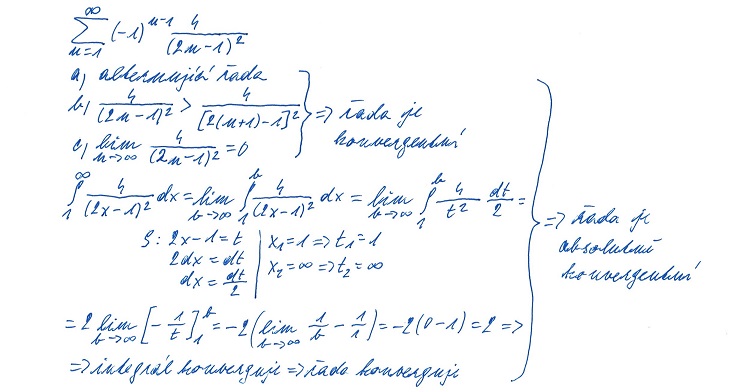 ∑_{n=1}^{∞} (-1)^{n-1} 4/(2n-1)^2
a, alternující řada
b, 4/(2n-1)^2 > 4/[2(n+1)-1]^2
c, lim_{n→∞} 4/(2n-1)^2 = 0
} => řada je
konvergentní
∫_1^∞ 4/(2x-1)^2 dx = lim_{b→∞} ∫_1^b 4/(2x-1)^2 dx = lim_{b→∞} ∫_1^b 4/t^2 dt/2 =
S: 2x-1=t | x_1=1 => t_1=1
2dx=dt | x_2=∞ => t_2=∞
dx=dt/2
= 2 lim_{b→∞} [-1/t]_1^b = -2(lim_{b→∞} 1/b - 1/1) = -2(0-1) = 2 =>
=> integrál konverguje => řada konverguje
} => řada je
absolutně
konvergentní